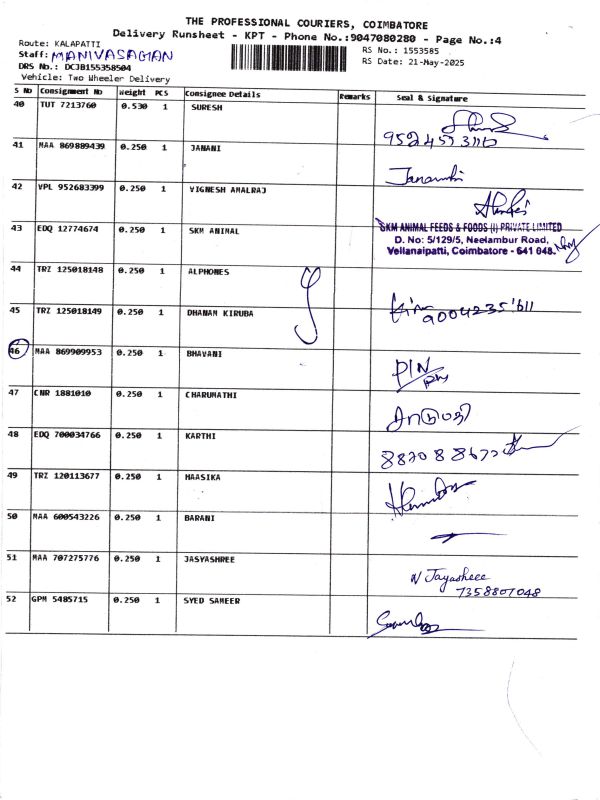 THE PROFESSIONAL COURIERS, COIMBATORE
Delivery Runsheet - KPT - Phone No.:9047080280 - Page No.:4
Route: KALAPATTI
RS No.: 1553585
Staff: MANIVASAGAN
RS Date: 21-May-2025
DRS No.: DCJB155358504
Vehicle: Two Wheeler Delivery
S No Consignment No Weight PCS Consignee Details Remarks Seal & Signature
40 TUT 7213760 0.530 1 SURESH
41 MAA 869889439 0.250 1 JANANI
42 VPL 952683399 0.250 1 VIGNESH AMALRAJ
43 EDQ 12774674 0.250 1 SKM ANIMAL
SKM ANIMAL FEEDS & FOODS (I) PRIVATE LIMITED
D. No: 5/129/5, Neelambur Road,
Vellanaipatti, Coimbatore - 641 048.
44 TRZ 125018148 0.250 1 ALPHONES
45 TRZ 125018149 0.250 1 DHANAM KIRUBA
46 MAA 869909953 0.250 1 BHAVANI
47 CNR 1881010 0.250 1 CHARUMATHI
சாருமதி
48 EDQ 700034766 0.250 1 KARTHI
49 TRZ 120113677 0.250 1 HAASIKA
50 MAA 600543226 0.250 1 BARANI
51 MAA 707275776 0.250 1 JASYASHREE
N Jayashree
7358807048
52 GPM 5485715 0.250 1 SYED SAMEER